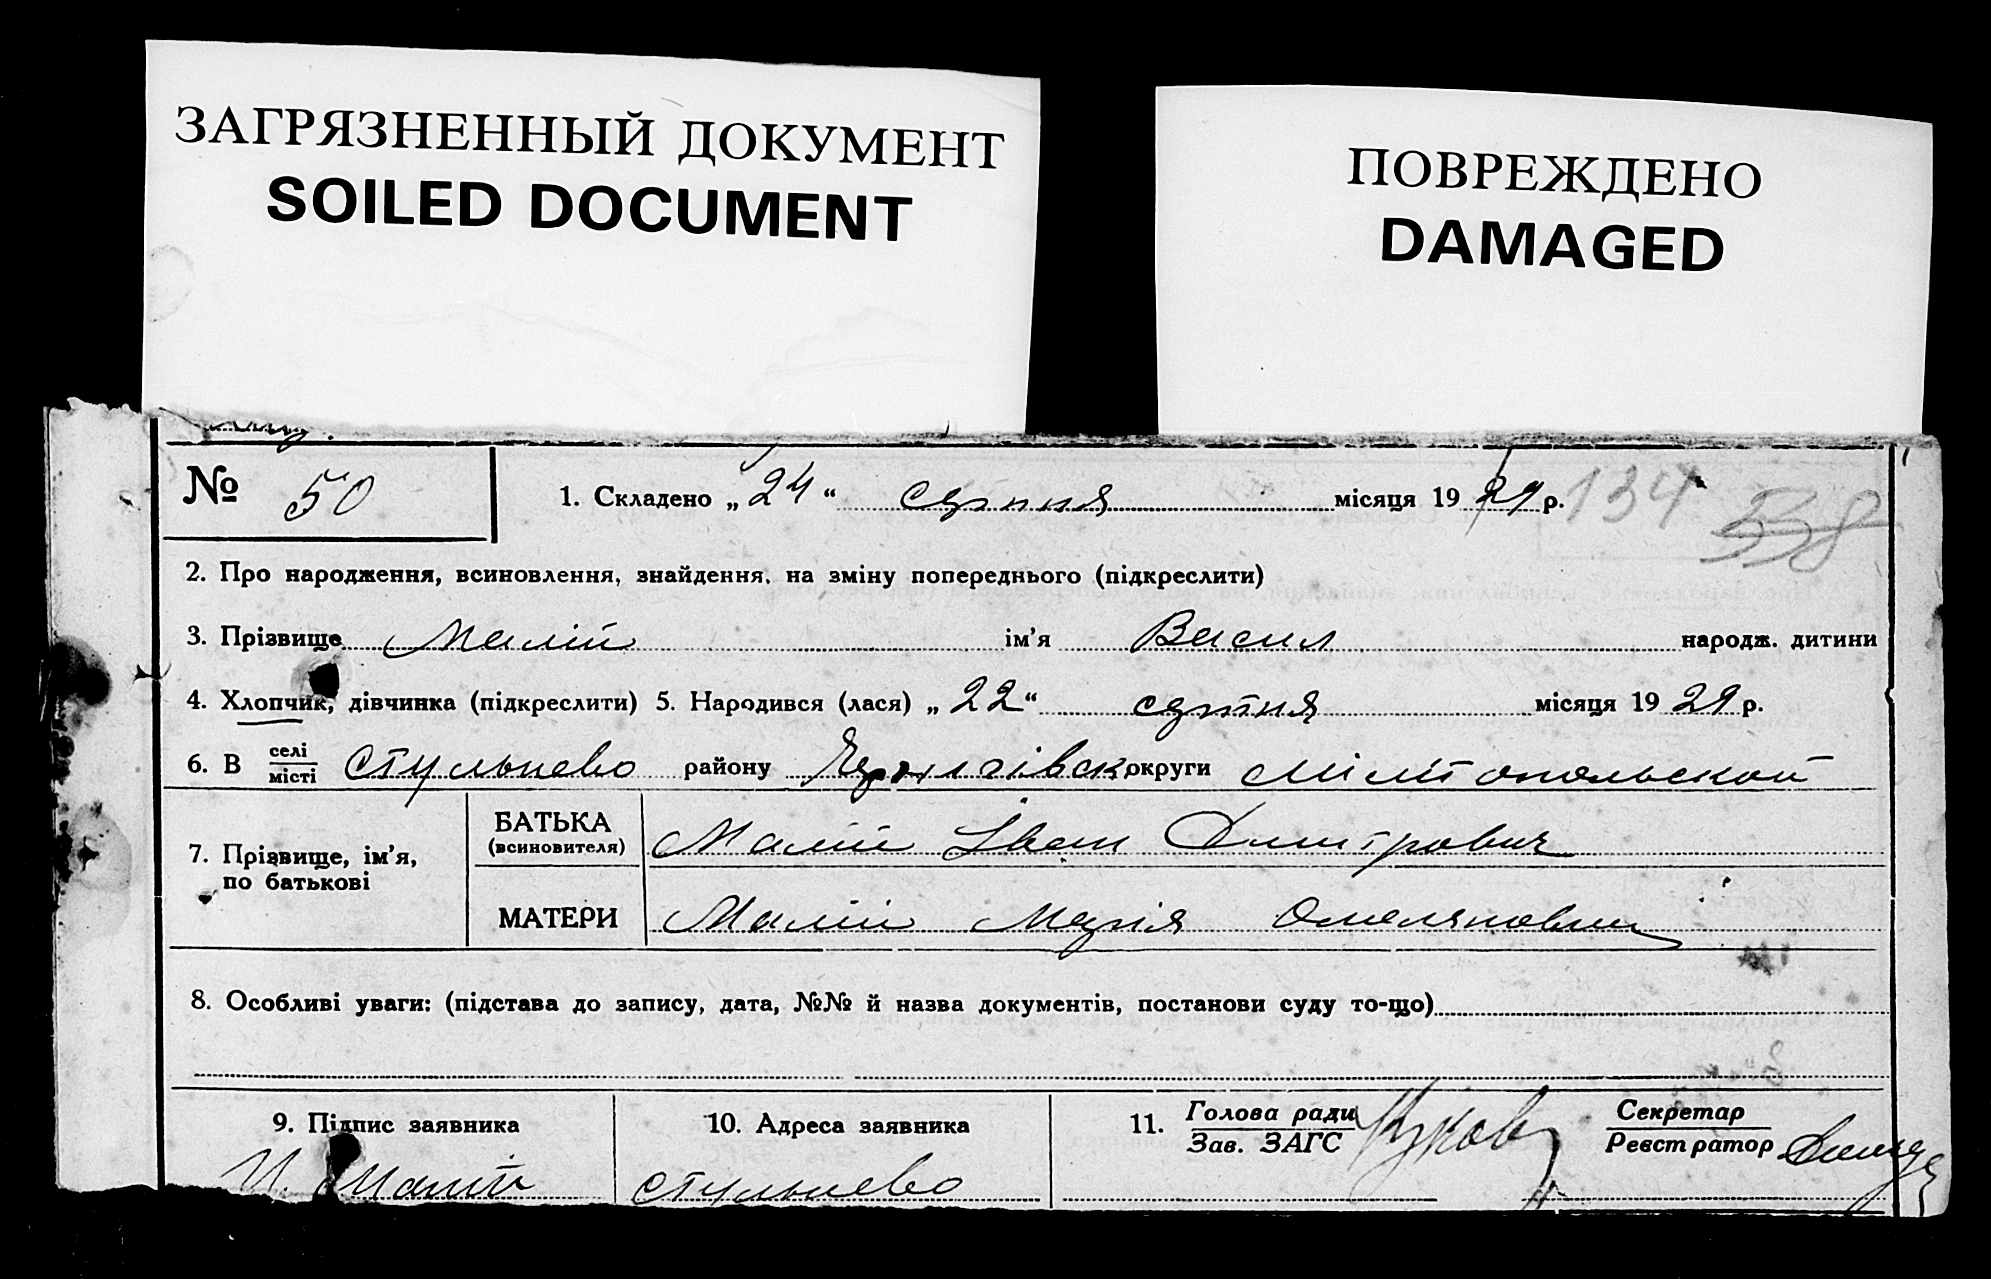 ЗАГРЯЗНЕННЫЙ ДОКУМЕНТ
SOILED DOCUMENT
ПОВРЕЖДЕНО
DAMAGED
№ 50
1. Складено „24“ серпня місяця 1929 р.
134 558
2. Про народження, всиновлення, знайдення, на зміну попереднього (підкреслити)
3. Прізвище Малій ім'я Васил народж. дитини
4. Хлопчик, дівчинка (підкреслити) 5. Народився (лася) „22“ серпня місяця 1929 р.
6. В селі місті Стульнево району округи Мілітопольской
7. Прізвище, ім'я, по батькові
БАТЬКА (всиновителя) Малій Іван Дмитрович
МАТЕРИ Малій Марія Омеляновна
8. Особливі уваги: (підстава до запису, дата, №№ й назва документів, постанови суду то-що)
9. Підпис заявника
И. Малій
10. Адреса заявника
Стульнево
11. Голова ради
Зав. ЗАГС
Секретар
Реєстратор